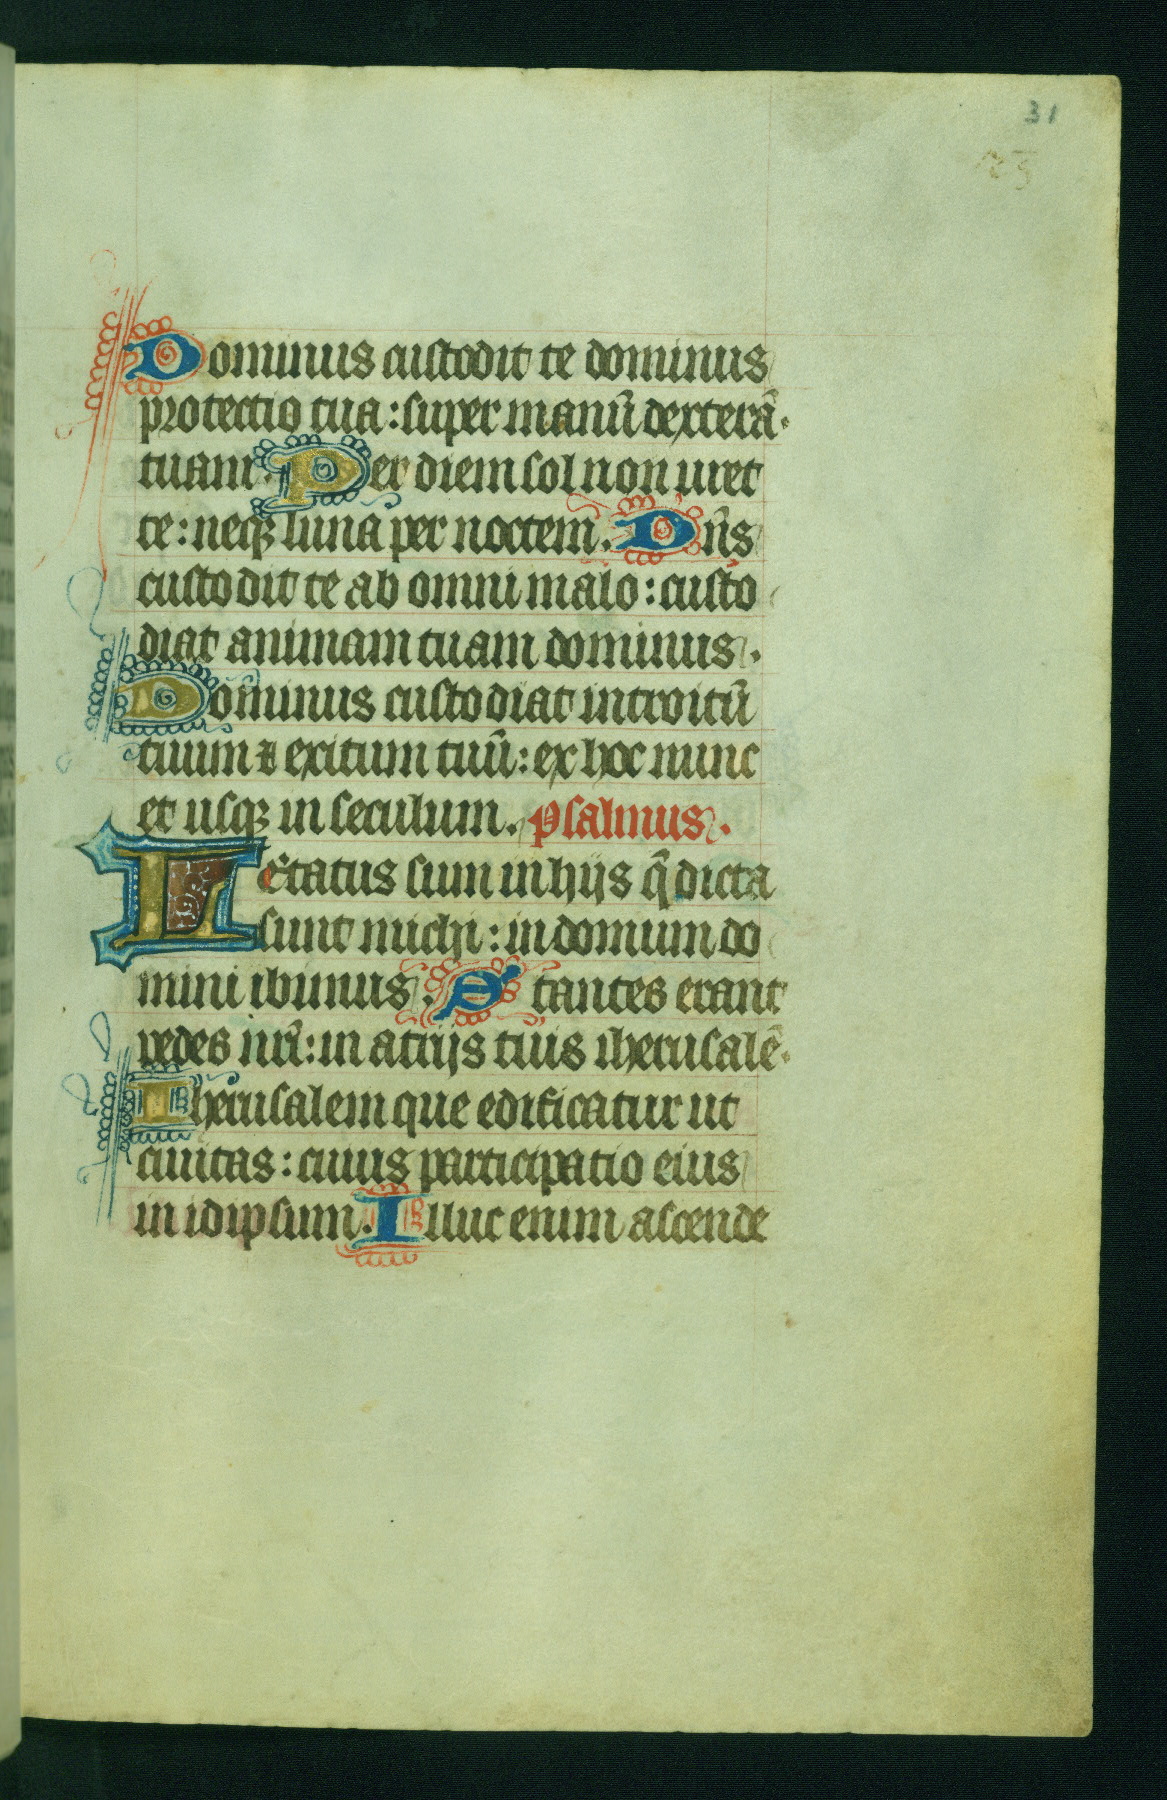 31
Dominus custodit te dominus
protectio tua : super manū dexterā
tuam . Per diem sol non uret
te : neqꝫ luna per noctem . Dn̄s
custodit te ab omni malo : custo
diat animam tuam dominus .
Dominus custodiat introitū
tuum ⁊ exitum tuū : ex hoc nunc
et usqꝫ in seculum . psalmus .
Letatus sum in hijs q̄ dicta
sunt michi : in domum do
mini ibimus . Stantes erant
pedes nr̄i : in atrijs tuis iherusalē .
Iherusalem que edificatur ut
ciuitas : cuius participatio eius
in idipsum . Illuc enim ascende